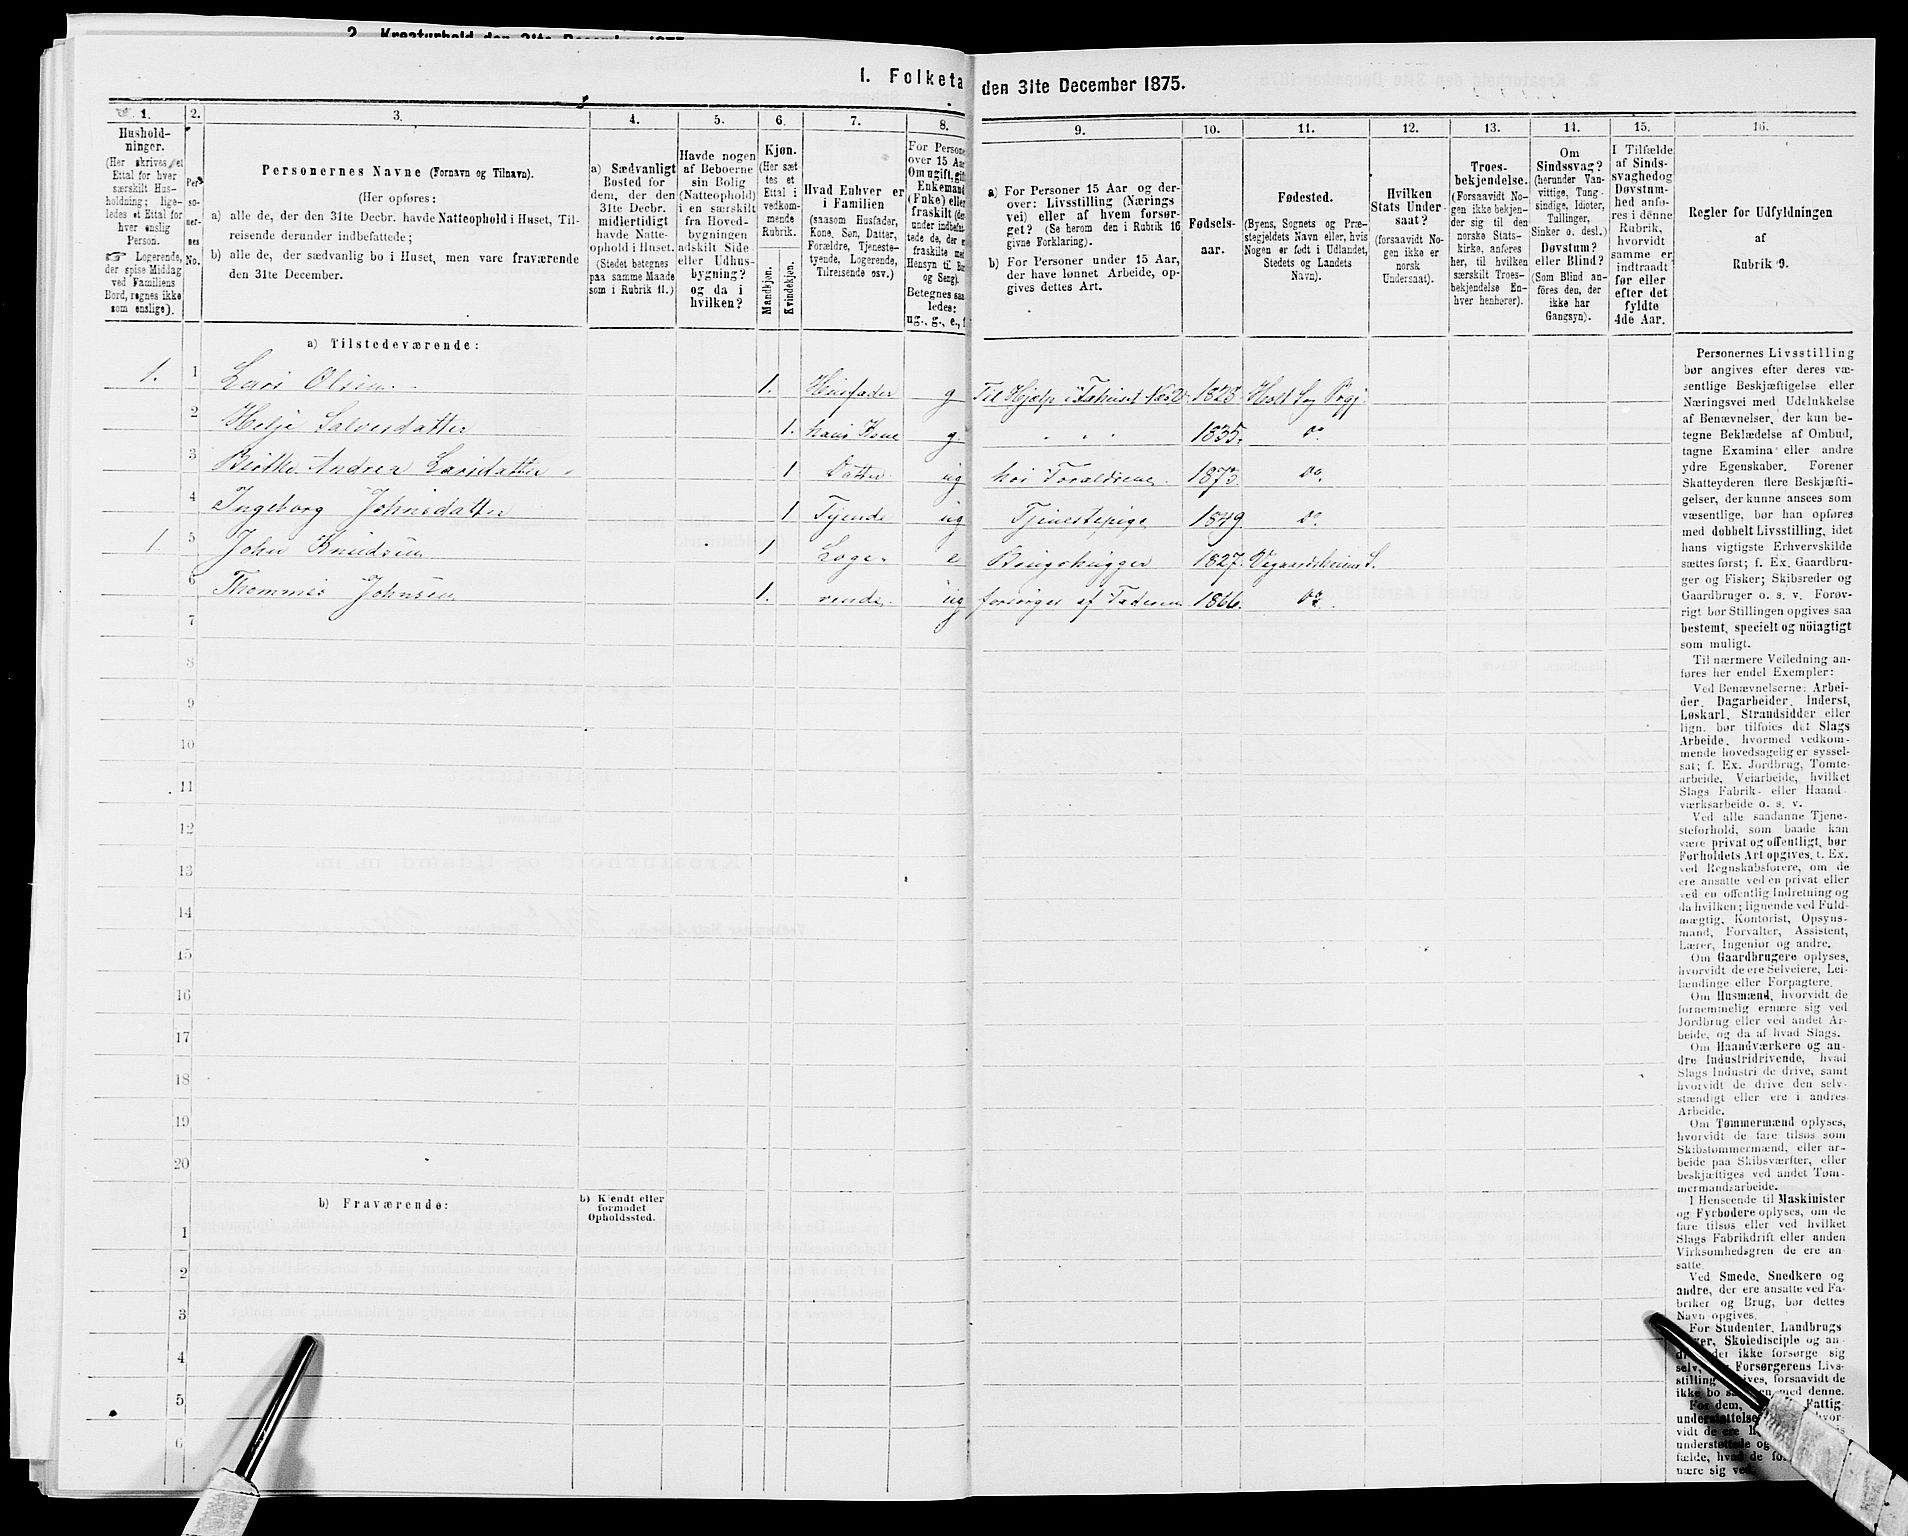 2. Kreaturhold den 31te December 1875
1. Folketa
den 31te December 1875.
1.
2.
3.
4.
5.
6.
7.
8.
9.
10.
11.
12.
13.
14.
15.
16.
Hushold-
ninger.
(Her skrives et
Ettal for hver
særskilt Hus-
holdning; lige-
ledes et Ettal for
hver enslig
Person.
☞ Logerende,
der spise Middag
ved Familiens
Bord, regnes ikke
som enslige).
Per-
so-
ner-
nes
No.
Personernes Navne (Fornavn og Tilnavn).
(Her opføres:
a) alle de, der den 31te Decbr. havde Natteophold i Huset, Til-
reisende derunder indbefattede;
b) alle de, der sædvanlig bo i Huset, men vare fraværende
den 31te December.
a) Sædvanligt
Bosted for
dem, der den
31te Decbr.
midlertidigt
havde Natte-
ophold i Huset.
(Stedet betegnes
paa samme Maade
som i Rubrik 11.)
Havde nogen
af Beboerne
sin Bolig
(Natteophold)
i en særskilt
fra Hoved-
bygningen
adskilt Side-
eller Udhus-
bygning?
og da i
hvilken?
Kjøn.
(Her sæt-
tes et
Ettal i
vedkom-
mende
Rubrik.
Mandkjøn.
Kvindekjøn.
Hvad Enhver er
i Familien
(saasom Husfader,
Kone, Søn, Datter,
Forældre, Tjeneste-
tyende, Logerende,
Tilreisende osv.)
For Persone
over 15 Aar
Om ugift, gift
Enkemand
(Enke) eller
fraskilt (der
under indbefat-
tede de, der er
fraskilte med
Hensyn til Bor
og Seng).
Betegnes saa
ledes:
ug., g., e., f
a) For Personer 15 Aar og der-
over: Livsstilling (Nærings
vei) eller af hvem forsør-
get? (Se herom den i Rubrik 16
givne Forklaring).
b) For Personer under 15 Aar,
der have lønnet Arbeide, op-
gives dettes Art.
Fødsels-
aar.
Fødested.
(Byens, Sognets og Præ-
stegjeldets Navn eller, hvis
Nogen er født i Udlandet,
Stedets og Landets
Navn).
Hvilken
Stats Under
saat?
(forsaavidt No-
gen ikke er
norsk
Undersaat).
Troes-
bekjendelse.
(Forsaavidt No-
gen ikke bekjen-
der sig til den
norske Stats-
kirke, anføres
her, til hvilken
særskilt Troes-
bekjendelse En-
hver henhører).
Om
Sindssvag?
(herunder Van-
vittige, Tung-
sindige, Idioter,
Tullinger,
Sinker o. desl.)
Døvstum?
eller Blind?
(Som Blind an-
føres den, der
ikke har
Gangsyn).
I Tilfælde
af Sinds-
svaghed og
Døvstum-
hed anfø-
res i denne
Rubrik,
hvorvidt
samme er
indtraadt
før eller
efter det
fyldte
4de Aar.
Regler for Udfyldningen
af
Rubrik 9.
a) Tilstedeværende:
1. 1 Lars Olsen 1. Husfader g Til Hjælp i 1823 Holt Sog Prgj.
2 Helje Salvesdatter 1. hans Kone g. " " " 1835. Do
3 Birthe Andrea Larsdatter 1 Datter ug hos Forældrene 1873. Do.
4 Ingeborg Johnsdatter 1 Tyende ug Tjenestepige 1849 Do
1. 5 John Knudsen 1 Loge- e 1827. Vegaardsheiens S.
6 Thommes Johnsen 1. rende ug forsørges af Faderen 1866. Do.
7
8
9
10
11
12
13
14
15
16
17
18
19
20
b) Fraværende:
b) Kjendt eller
formodet
Opholdssted.
1
2
3
4
5
6
Personernes Livsstilling
bør angives efter deres væ-
sentlige Beskjæftigelse eller
Næringsvei med Udelukkelse
af Benævnelser, der kun be-
tegne Beklædelse af Ombud,
tagne Examina eller andre
ydre Egenskaber. Forener
Skatteyderen flere Beskjæfti-
gelser, der kunne ansees som
væsentlige, bør han opføres
med dobbelt Livsstilling, idet
hans vigtigste Erhvervskilde
sættes først; f. Ex. Gaardbru-
ger og Fisker; Skibsreder og
Gaardbruger o. s. v. Forøv-
rigt bør Stillingen opgives saa
bestemt, specielt og nöiagtigt
som muligt.
Til nærmere Veiledning an-
føres her endel Exempler:
Ved Benævnelserne: Arbei-
der, Dagarbeider, Inderst,
Løskarl, Strandsidder eller
lign. bør tilføies det Slags
Arbeide, hvormed vedkom-
mende hovedsagelig er syssel-
sat; f. Ex. Jordbrug, Tomte-
arbeide, Veiarbeide, hvilket
Slags Fabrik- eller Haand-
værksarbeide o. s. v.
Ved alle saadanne Tjene-
steforhold, som baade kan
være privat og offentligt, bør
Forholdets Art opgives, t. Ex.
ved Regnskabsførere, om de
ere ansatte ved en privat eller
ved en offentlig Indretning og
da hvilken; lignende ved Fuld-
mægtig, Kontorist, Opsyns-
mand, Forvalter, Assistent,
Lærer, Ingeniør og andre.
Om Gaardbrugere oplyses,
hvorvidt de ere Selveiere, Lei-
lændinge eller Forpagtere.
Om Husmænd, hvorvidt de
fornemmelig ernære sig ved
Jordbrug eller ved andet Ar-
beide, og da af hvad Slags.
Om Haandværkere og an-
dre Industridrivende, hvad
Slags Industri de drive, samt
hvorvidt de drive den selv-
stændigt eller ere i andres
Arbeide.
Om Tømmermænd oplyses,
hvorvidt de fare tilsøs som
Skibstømmermænd, eller ar-
beide paa Skibsværfter, eller
beskjæftiges ved andet Tøm-
mermandsarbeide.
I Henseende til Maskinister
og Fyrbødere oplyses, om de
fare tilsøs eller ved hvilket
Slags Fabrikdrift eller anden
Virksomhedsgren de ere an-
satte.
Ved Smede, Snedkere og
andre, der ere ansatte ved Fa-
briker og Brug, bør dettes
Navn opgives.
For Studenter, Landbrugs
Skoledisciple og an-
det ikke forsørge sig
selv, Forsørgerens Livs-
stilling forsaavidt de
ikke bo med denne.
For dem, Fattig-
understøttelse
vidt de ere
understøttede og
fælde, hvad de
nære sig ved.